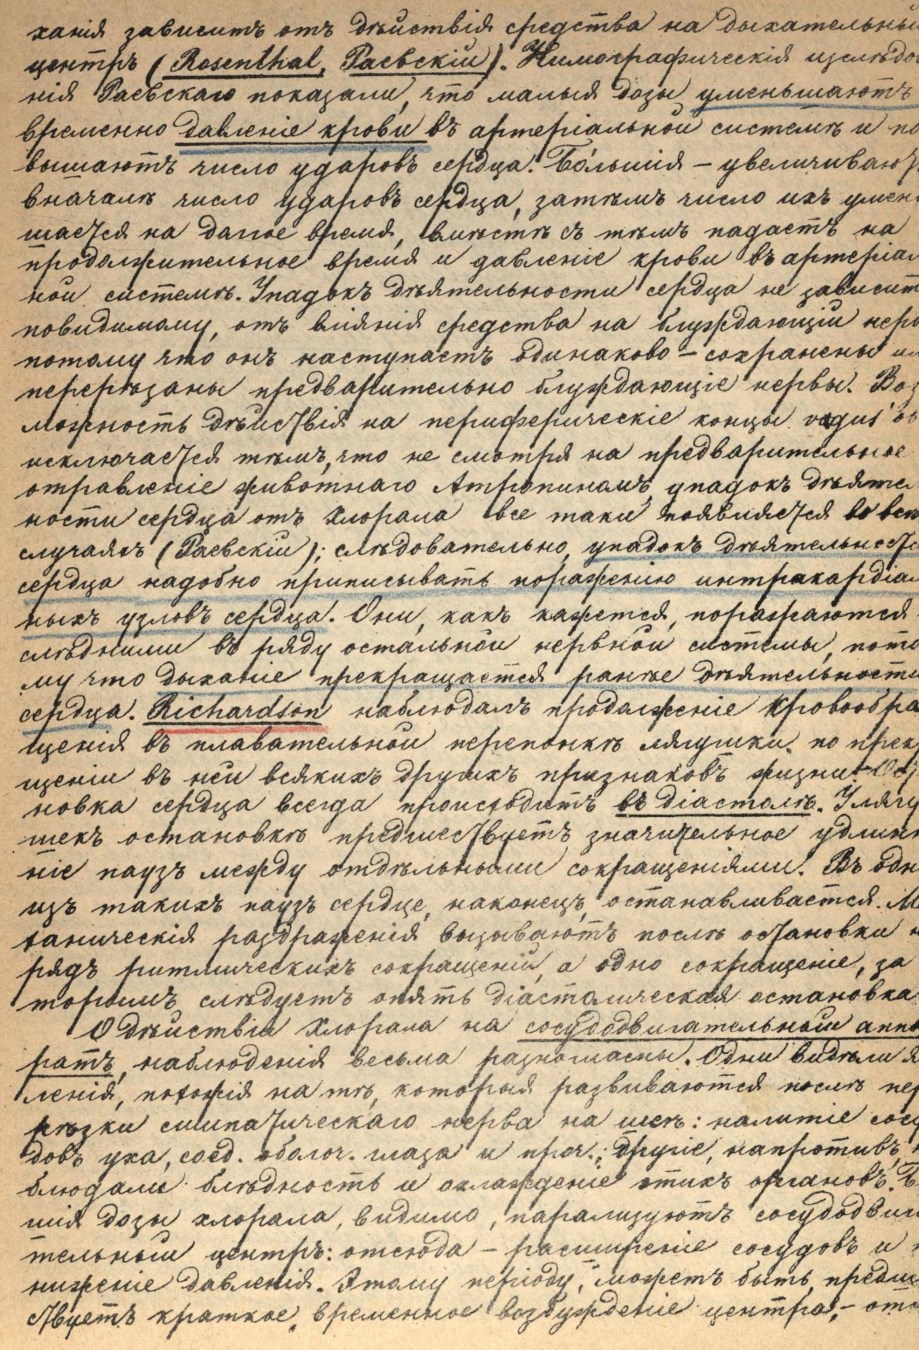 ханія зависитъ отъ дѣйствія средства на дыхательный
центръ (Rosenthal, Раевскій). Кимографическія изслѣдо
нія Раевскаго показали, что малыя дозы уменьшаютъ
временно давленіе крови въ артеріальной системѣ и по
вышаютъ число ударовъ сердца. Бо́льшія – увеличиваю
вначалѣ число ударовъ сердца, затѣмъ число ихъ умен
шается на долгое время, вмѣстѣ съ тѣмъ падаетъ на
продолжительное время и давленіе крови въ артеріал
ной системѣ. Упадокъ дѣятельности сердца не зависит
повидимому, отъ вліянія средства на блуждающій нерв
потому что онъ наступаетъ одинаково – сохранены ил
перерѣзаны предварительно блуждающіе нервы. Воз
можность дѣйствія на периферическіе концы vagus'овъ
исключается тѣмъ, что не смотря на предварительное
отравленіе животнаго Атропиномъ, упадокъ дѣяте
ности сердца отъ Хлорала все таки появляется во все
случаяхъ (Раевскій); слѣдовательно, упадокъ дѣятельност
сердца надобно приписывать пораженію интракардіал
ныхъ узловъ сердца. Они, какъ кажется, поражаются
слѣдними въ ряду остальной нервной системы, пото
му что дыханіе прекращается ранѣе дѣятельности
сердца. Richardson наблюдалъ продолженіе кровообра
щенія въ плавательной перепонкѣ лягушки, по прек
щеніи въ ней всякихъ другихъ признаковъ жизни. – Ост
новка сердца всегда происходитъ въ діастолѣ. У лягу
шекъ остановкѣ предшествуетъ значительное удлин
ніе паузъ между отдѣльными сокращеніями. Въ одн
изъ такихъ паузъ сердце, наконецъ, останавливается. М
ханическія раздраженія вызываютъ послѣ остановки н
рядъ ритмическихъ сокращеній, а одно сокращеніе, за
торымъ слѣдуетъ опять діастолическая остановка
О дѣйствіи Хлорала на сосудодвигательный аппа
ратъ, наблюденія весьма разногласны. Одни видѣли я
ленія, похожія на тѣ, которыя развиваются послѣ пер
рѣзки симпатическаго нерва на шеѣ: налитіе сосу
довъ уха, соед. оболоч. глаза и проч.; другіе, напротивъ, н
блюдали блѣдность и охлажденіе этихъ органовъ. Б
шія дозы хлорала, видимо, парализуютъ сосудодвиг
тельный центръ: отсюда – расширеніе сосудовъ и п
ниженіе давленія. Этому періоду, можетъ быть, предш
ствуетъ краткое, временное возбужденіе центра, – отс